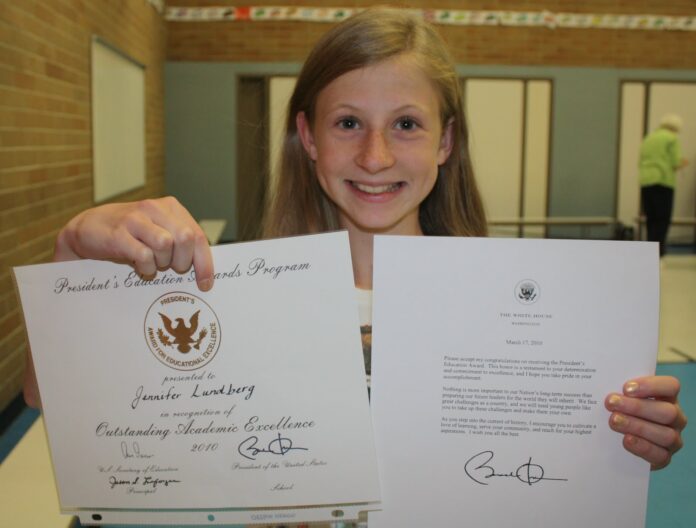 President's Education Awards Program
PRESIDENT'S
AWARD FOR EDUCATIONAL EXCELLENCE
presented to
Jennifer Lundberg
in recognition of
Outstanding Academic Excellence
2010
U.S. Secretary of Education
President of the United States
Principal
School
THE WHITE HOUSE
WASHINGTON
March 17, 2010
Please accept my congratulations on receiving the President's
Education Award. This honor is a statement to your determination
and commitment to excellence, and I hope you take pride in your
accomplishment.
Nothing is more important to our Nation's long-term success than
preparing our future leaders for the world they will inherit. We face
great challenges as a country, and we will need young people like
you to take up these challenges and make them your own.
As you step into the current of history, I encourage you to cultivate a
love of learning, serve your community, and reach for your highest
aspirations. I wish you all the best.